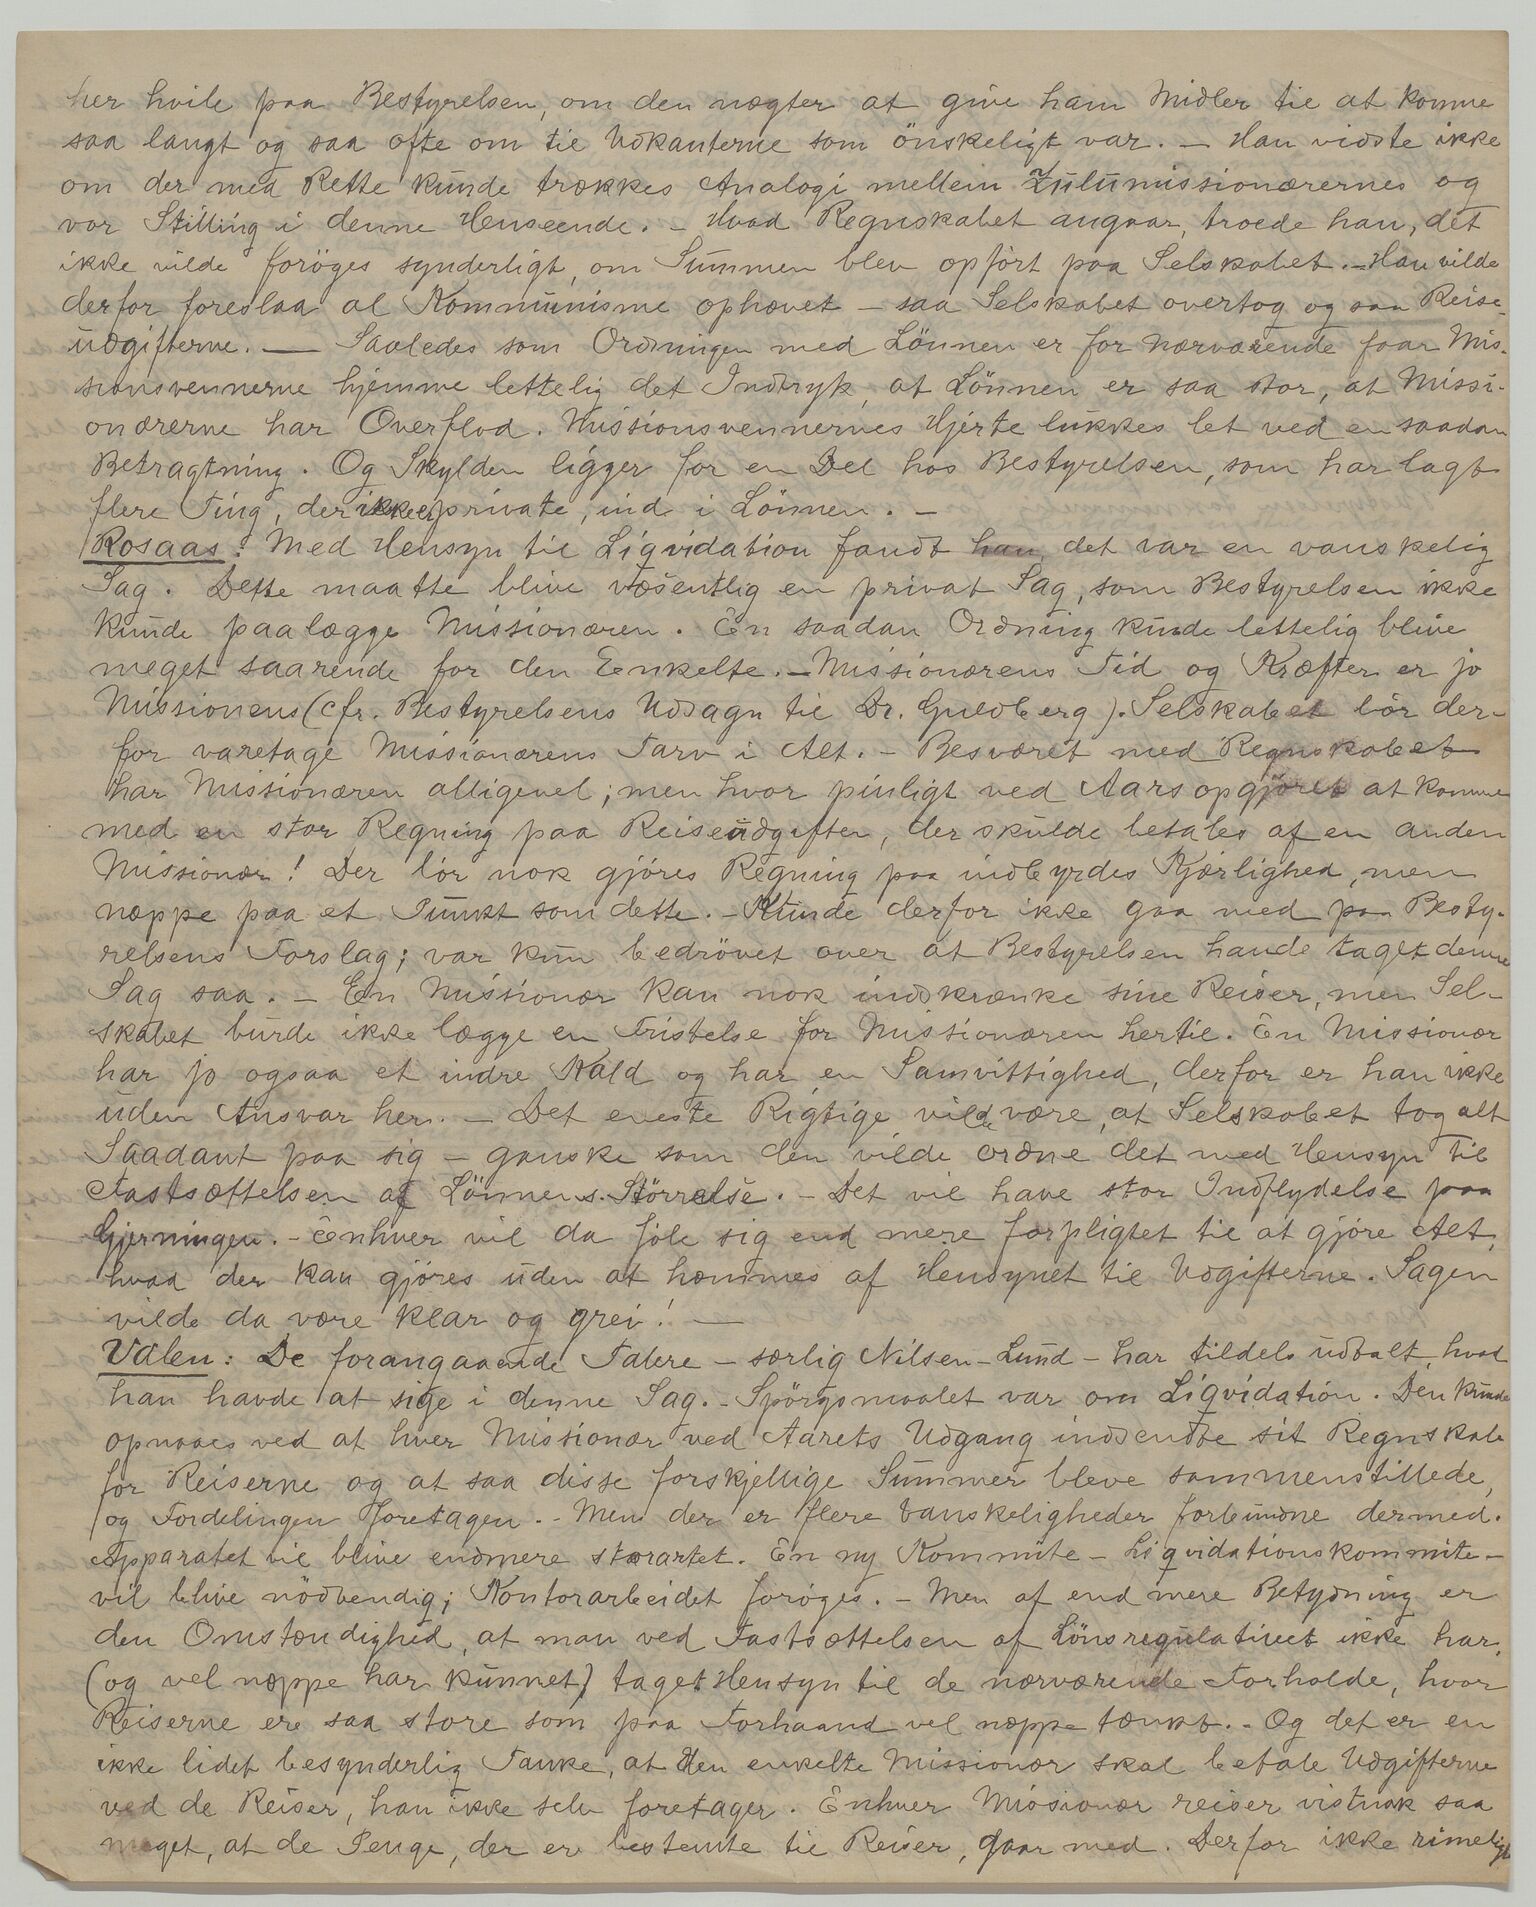 her hvile paa Bestyrelsen, om den nægter at give ham Midler til at komme
saa langt og saa ofte om til Udkanterne som önskeligt var. — Han vidste ikke
om der med Rette kunde trækkes Analogi mellem Zulumissionærernes og
vor Stilling i denne Henseende. – Hvad Regnskabet angaar, troede han, det
ikke vilde foröges synderligt, om Summen blev opfört paa Selskabet. – Han vilde
derfor foreslaa al Kommunisme ophævet — saa Selskabet overtog og saa Reise-
udgifterne. — Saaledes som Ordningen med Lönnen er for Nærværende faar Mis-
sionsvennerne hjemme lettelig det Indtryk, at Lönnen er saa stor, at Missi-
onærerne har Overflod. Missionsvennernes Hjerte lukkes let ved en saadan
Betragtning. Og Skylden ligger for en Del hos Bestyrelsen, som har lagt
flere Ting, der ikke er private, ind i Lönnen. –
Rosaas: Med Hensyn til Liqvidation fandt han det var en vanskelig
Sag. Dette maatte blive væsentlig en privat Sag, som Bestyrelsen ikke
kunde paalægge Missionæren. En saadan Ordning kunde lettelig blive
meget saarende for den Enkelte. – Missionærens Tid og Kræfter er jo
Missionens (cfr. Bestyrelsens Udsagn til Dr. Guldberg). Selskabet bör der-
for varetage Missionærens Tarv i Alt. – Besværet med Regnskabet
har Missionæren alligevel; men hvor pinligt ved Aarsopgjöret at komme
med en stor Regning paa Reiseudgifter, der skulde betales af en anden
Missionær! Der bör nok gjöres Regning paa indbyrdes Kjærlighed, men
næppe paa et Punkt som dette. – Kunde derfor ikke gaa med paa Besty-
relsens Forslag; var kun bedrövet over at Bestyrelsen havde taget denne
Sag saa. – En Missionær kan nok indskrænke sine Reiser, men Sel-
skabet burde ikke lægge en Fristelse for Missionæren hertil. En Missionær
har jo ogsaa et indre Kald og har en Samvittighed, derfor er han ikke
uden Ansvar her. – Det eneste Rigtige vilde være, at Selskabet tog alt
Saadant paa sig – ganske som den vilde ordne det med Hensyn til
Fastsættelsen af Lönnens Störrelse. – Det vil have stor Indflydelse paa
Gjerningen. – Enhver vil da föle sig end mere forpligtet til at gjöre Alt,
hvad der kan gjöres uden at hæmmes af Hensynet til Udgifterne. Sagen
vilde da være klar og grei! —
Valen: De forangaaende Talere – særlig Nilsen-Lund – har tildels udtalt, hvad
han havde at sige i denne Sag. – Spörgsmaalet var om Liqvidation. Den kunde
opnaaes ved at hver Missionær ved Aarets Udgang indsendte sit Regnskab
for Reiserne og at saa disse forskjellige Summer bleve sammenstillede,
og Fordelingen foretagen. – Men der er flere Vanskeligheder forbundne dermed.
Apparatet vil blive endmere storartet. En ny Kommite – Liqvidationskommite –
vil blive nödvendig; Kontorarbeidet foröges. – Men af end mere Betydning er
den Omstændighed, at man ved Fastsættelsen af Lönsregulativet ikke har
(og vel næppe har kunnet) taget Hensyn til de nærværende Forholde, hvor
Reiserne ere saa store som paa Forhaand vel næppe tænkt. – Og det er en
ikke lidet besynderlig Tanke, at den enkelte Missionær skal betale Udgifterne
ved de Reiser, han ikke selv foretager. Enhver Missionær reiser vistnok saa
meget, at de Penge, der er bestemte til Reiser, gaar med. Derfor ikke rimeligt